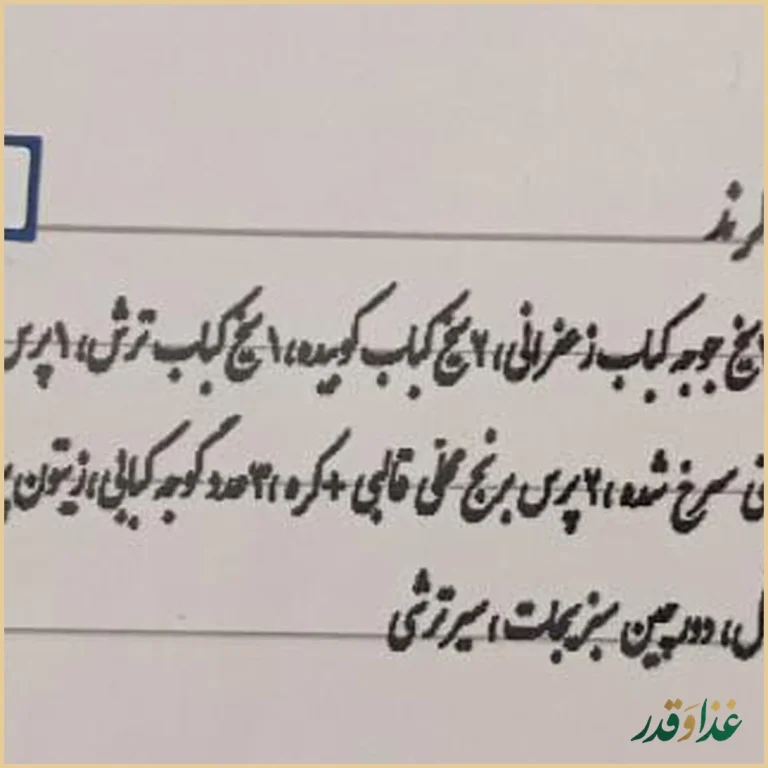 سیخ جوجه کباب زعفرانی، ۲ سیخ کباب کوبیده، ۱ سیخ کباب ترش، ۱ پرس
سرخ شده، ۲ پرس برنج محلی قالبی + کره، ۳ عدد گوجه کبابی، زیتون
دورچین سبزیجات، سیر ترشی
غذا و قدر